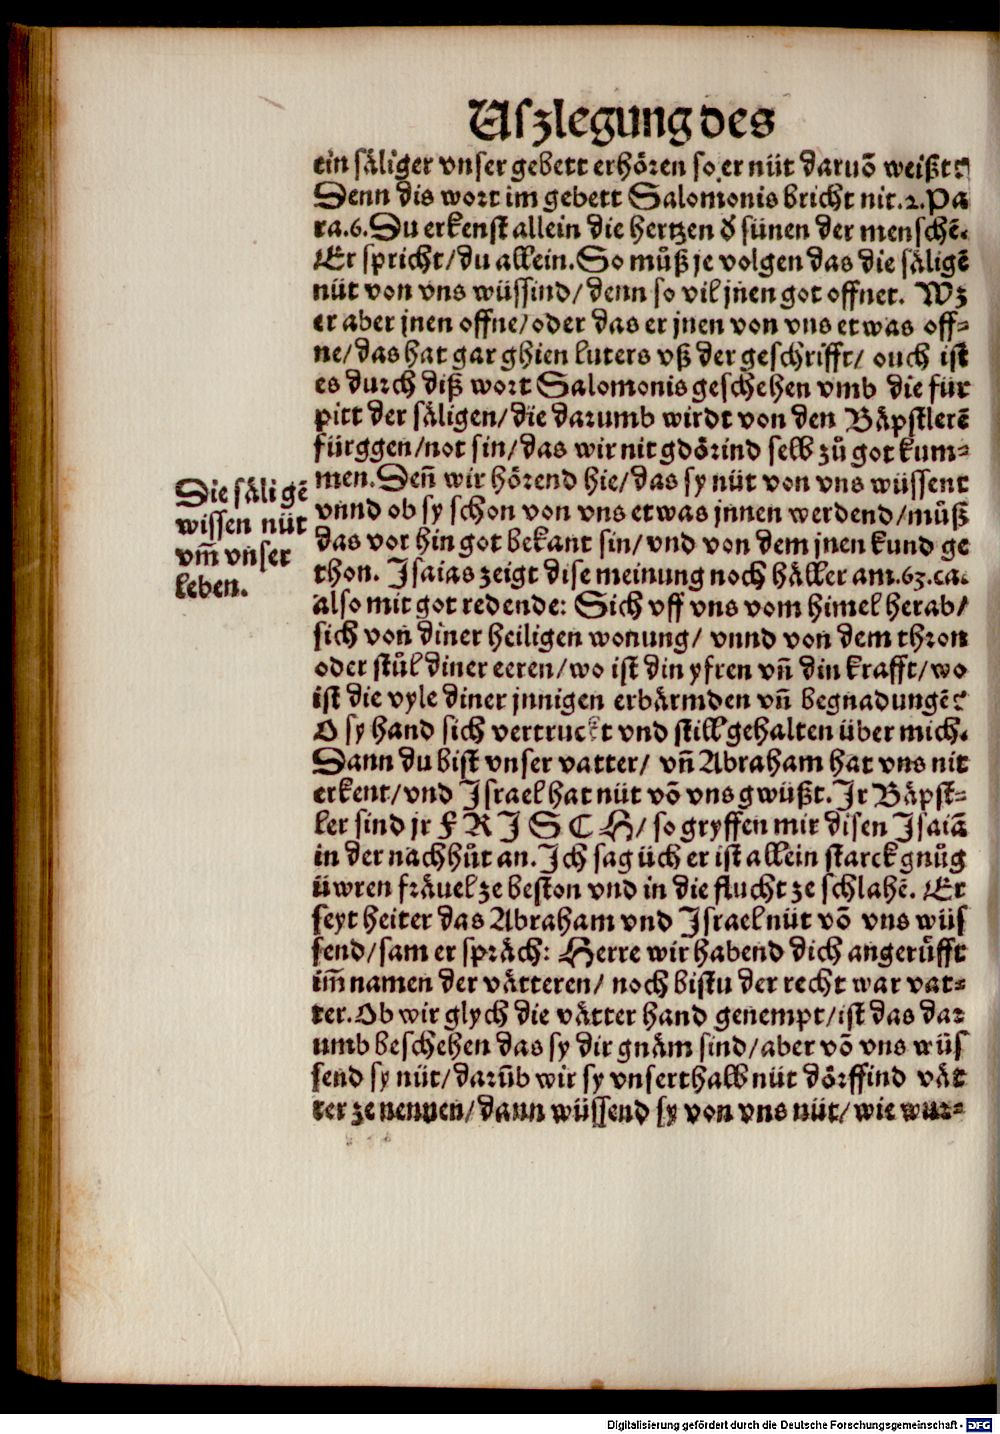 Uszlegung des
ein säliger vnser gebett erhören so er nüt daruõ weißt?
Denn dis wort im gebett Salomonis bricht nit. 2. Pa
ra. 6. Du erkenst allein die hertzen d̕ sünen der menschẽ.
Er spricht/ du allein. So můß je volgen das die säligẽ
nüt von vns wüssind/ denn so vil jnen got offnet. Wz
er aber jnen offne/ oder das er jnen von vns etwas off-
ne/ das hat gar ghien luters vß der geschrifft/ ouch ist
es durch diß wort Salomonis geschehen vmb die für
pitt der säligen/ die darumb wirdt von den Bäpstlerẽ
fürggen/ not sin/ das wir nit gdörind selb zů got kum-
men. Deñ wir hörend hie/ das sy nüt von vns wüssent
vnnd ob sy schon von vns etwas jnnen werdend/ můß
das vor hin got bekant sin/ vnd von dem jnen kund ge
thon. Isaias zeigt dise meinung noch häller am. 63. ca.
also mit got redende: Sich vff vns vom himel herab/
sich von diner heiligen wonung/ vnnd von dem thron
oder stůl diner eeren/ wo ist din yfren vñ din krafft/ wo
ist die vyle diner jnnigen erbärmden vñ begnadungẽ?
O sy hand sich vertruckt vnd still gehalten über mich.
Dann du bist vnser vatter/ vñ Abraham hat vns nit
erkent/ vnd Israel hat nüt võ vns gwüßt. Ir Bäpst-
ler sind jr F R I S C H/ so gryffen mir disen Isaiã
in der nachhůt an. Ich sag üch er ist allein starck gnůg
üwren fräuel ze beston vnd in die flucht ze schlahẽ. Er
seyt heiter das Abraham vnd Israel nüt võ vns wüs
send/ sam er spräch: Herre wir habend dich angerůfft
im̃ namen der vätteren/ noch bistu der recht war vat-
ter. Ob wir glych die vätter hand genempt/ ist das dar
umb beschehen das sy dir gnäm sind/ aber võ vns wüs
send sy nüt/ darũb wir sy vnserthalb nüt dörffind vät
ter ze nennen/ dann wüssend sy von vns nüt/ wie wur-
Die säligẽ
wissen nüt
vm̃ vnser
leben.
Digitalisierung gefördert durch die Deutsche Forschungsgemeinschaft - DFG